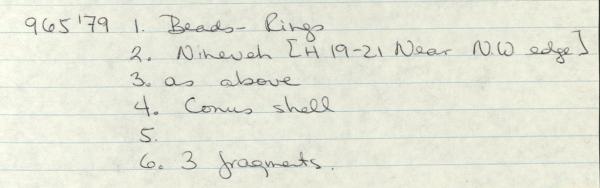 965'79 1. Beads - Rings
2. Nineveh [H 19-21 Near N.W edge]
3. as above
4. Conus shell
5.
6. 3 fragments.